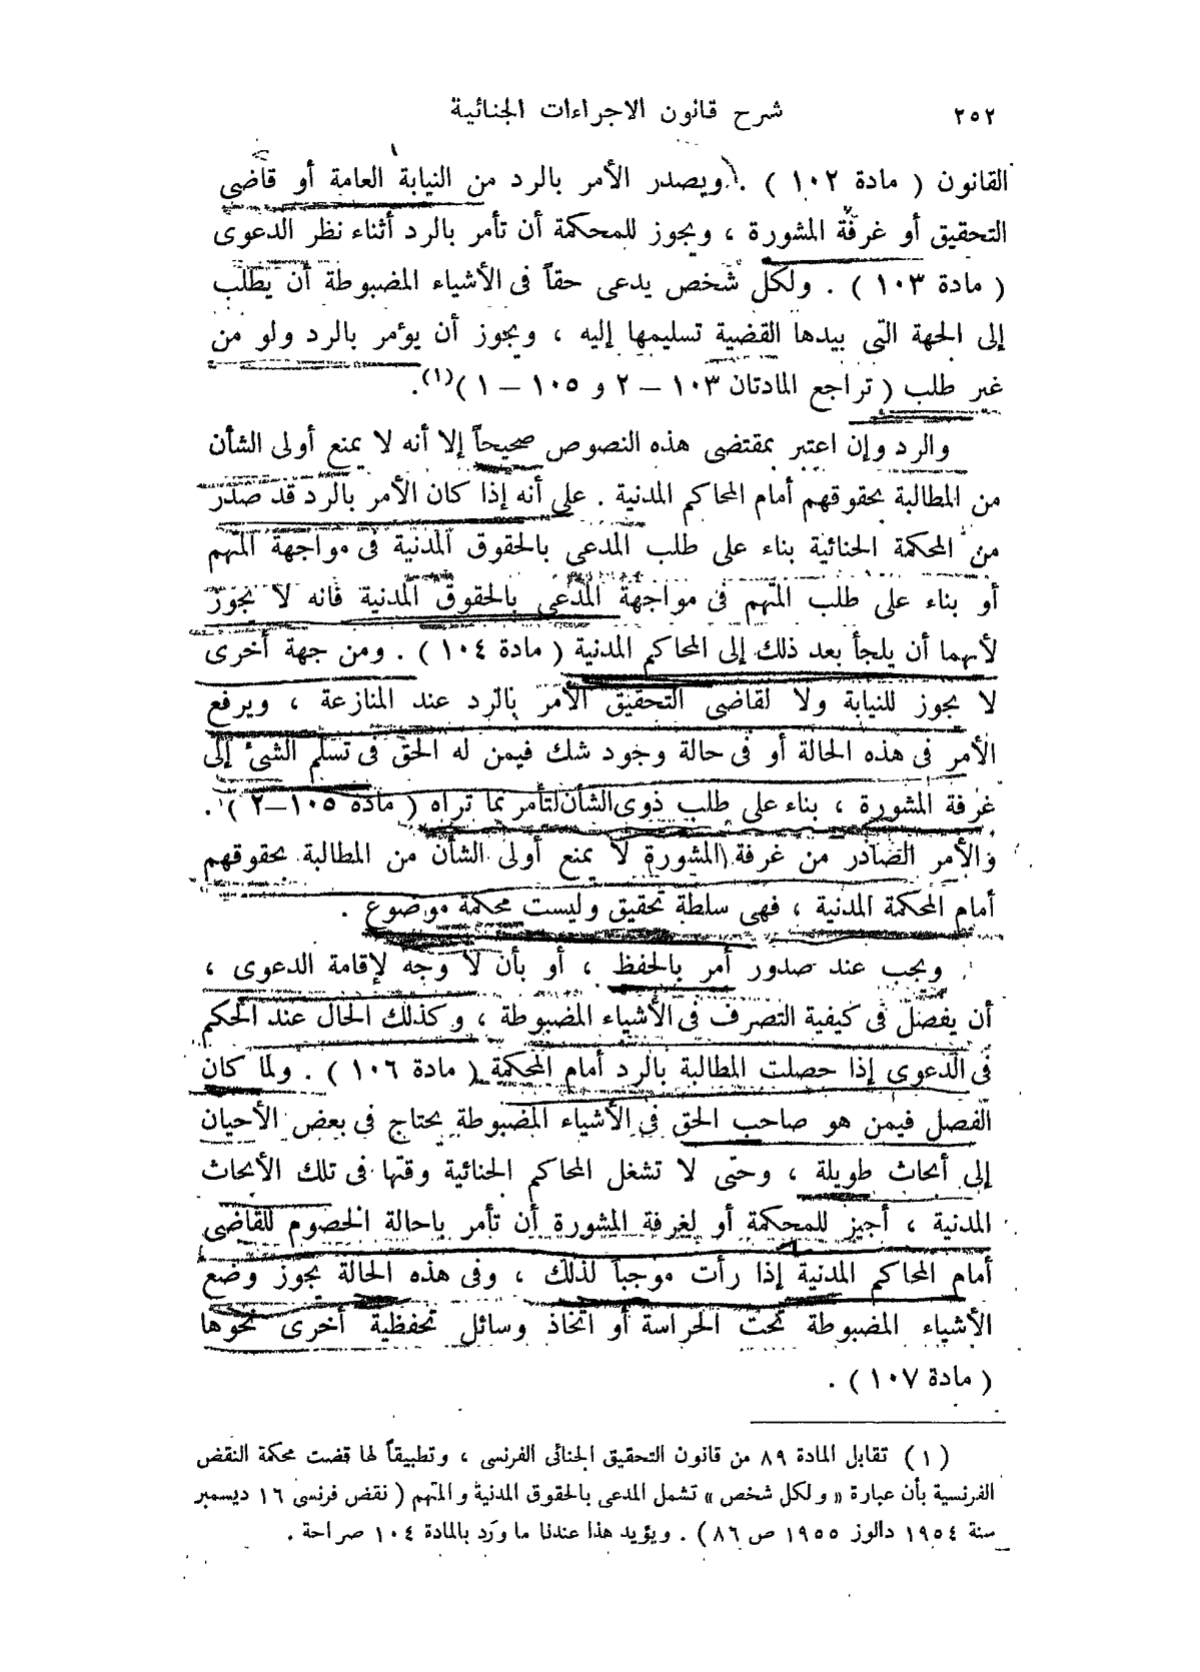 ٢٥٢ شرح قانون الاجراءات الجنائية
القانون ( مادة ١٠٢ ) . ويصدر الأمر بالرد من النيابة العامة أو قاضى
التحقيق أو غرفة المشورة ، ويجوز للمحكمة أن تأمر بالرد أثناء نظر الدعوى
( مادة ١٠٣ ) . ولكل شخص يدعى حقاً فى الأشياء المضبوطة أن يطلب
إلى الجهة التى بيدها القضية تسليمها إليه ، ويجوز أن يؤمر بالرد ولو من
غير طلب ( تراجع المادتان ١٠٣ – ٢ و ١٠٥ – ١ )(١).
والرد وإن اعتبر بمقتضى هذه النصوص صحيحاً إلا أنه لا يمنع أولى الشأن
من المطالبة بحقوقهم أمام المحاكم المدنية . على أنه إذا كان الأمر بالرد قد صدر
من المحكمة الجنائية بناء على طلب المدعى بالحقوق المدنية فى مواجهة المتهم
أو بناء على طلب المتهم فى مواجهة المدعى بالحقوق المدنية فانه لا يجوز
لأيهما أن يلجأ بعد ذلك إلى المحاكم المدنية ( مادة ١٠٤ ) . ومن جهة أخرى
لا يجوز للنيابة ولا لقاضى التحقيق الأمر بالرد عند المنازعة ، ويرفع
الأمر فى هذه الحالة أو فى حالة وجود شك فيمن له الحق فى تسلم الشئ إلى
غرفة المشورة ، بناء على طلب ذوى الشأن لتأمر بما تراه ( مادة ١٠٥–٢ ) .
والأمر الصادر من غرفة المشورة لا يمنع أولى الشأن من المطالبة بحقوقهم
أمام المحكمة المدنية ، فهى سلطة تحقيق وليست محكمة موضوع .
ويجب عند صدور أمر بالحفظ ، أو بأن لا وجه لإقامة الدعوى ،
أن يفصل فى كيفية التصرف فى الأشياء المضبوطة ، وكذلك الحال عند الحكم
فى الدعوى إذا حصلت المطالبة بالرد أمام المحكمة ( مادة ١٠٦ ) . ولما كان
الفصل فيمن هو صاحب الحق فى الأشياء المضبوطة يحتاج فى بعض الأحيان
إلى أبحاث طويلة ، وحتى لا تشغل المحاكم الجنائية وقتها فى تلك الأبحاث
المدنية ، أجيز للمحكمة أو لغرفة المشورة أن تأمر باحالة الخصوم للتقاضى
أمام المحاكم المدنية إذا رأت موجباً لذلك ، وفى هذه الحالة يجوز وضع
الأشياء المضبوطة تحت الحراسة أو اتخاذ وسائل تحفظية أخرى نحوها
( مادة ١٠٧ ) .
( ١ ) تقابل المادة ٨٩ من قانون التحقيق الجنائى الفرنسى ، وتطبيقاً لها قضت محكمة النقض
الفرنسية بأن عبارة « ولكل شخص » تشمل المدعى بالحقوق المدنية والمتهم ( نقض فرنسى ١٦ ديسمبر
سنة ١٩٥٤ دالوز ١٩٥٥ ص ٨٦ ) . ويؤيد هذا عندنا ما ورد بالمادة ١٠٤ صراحة .